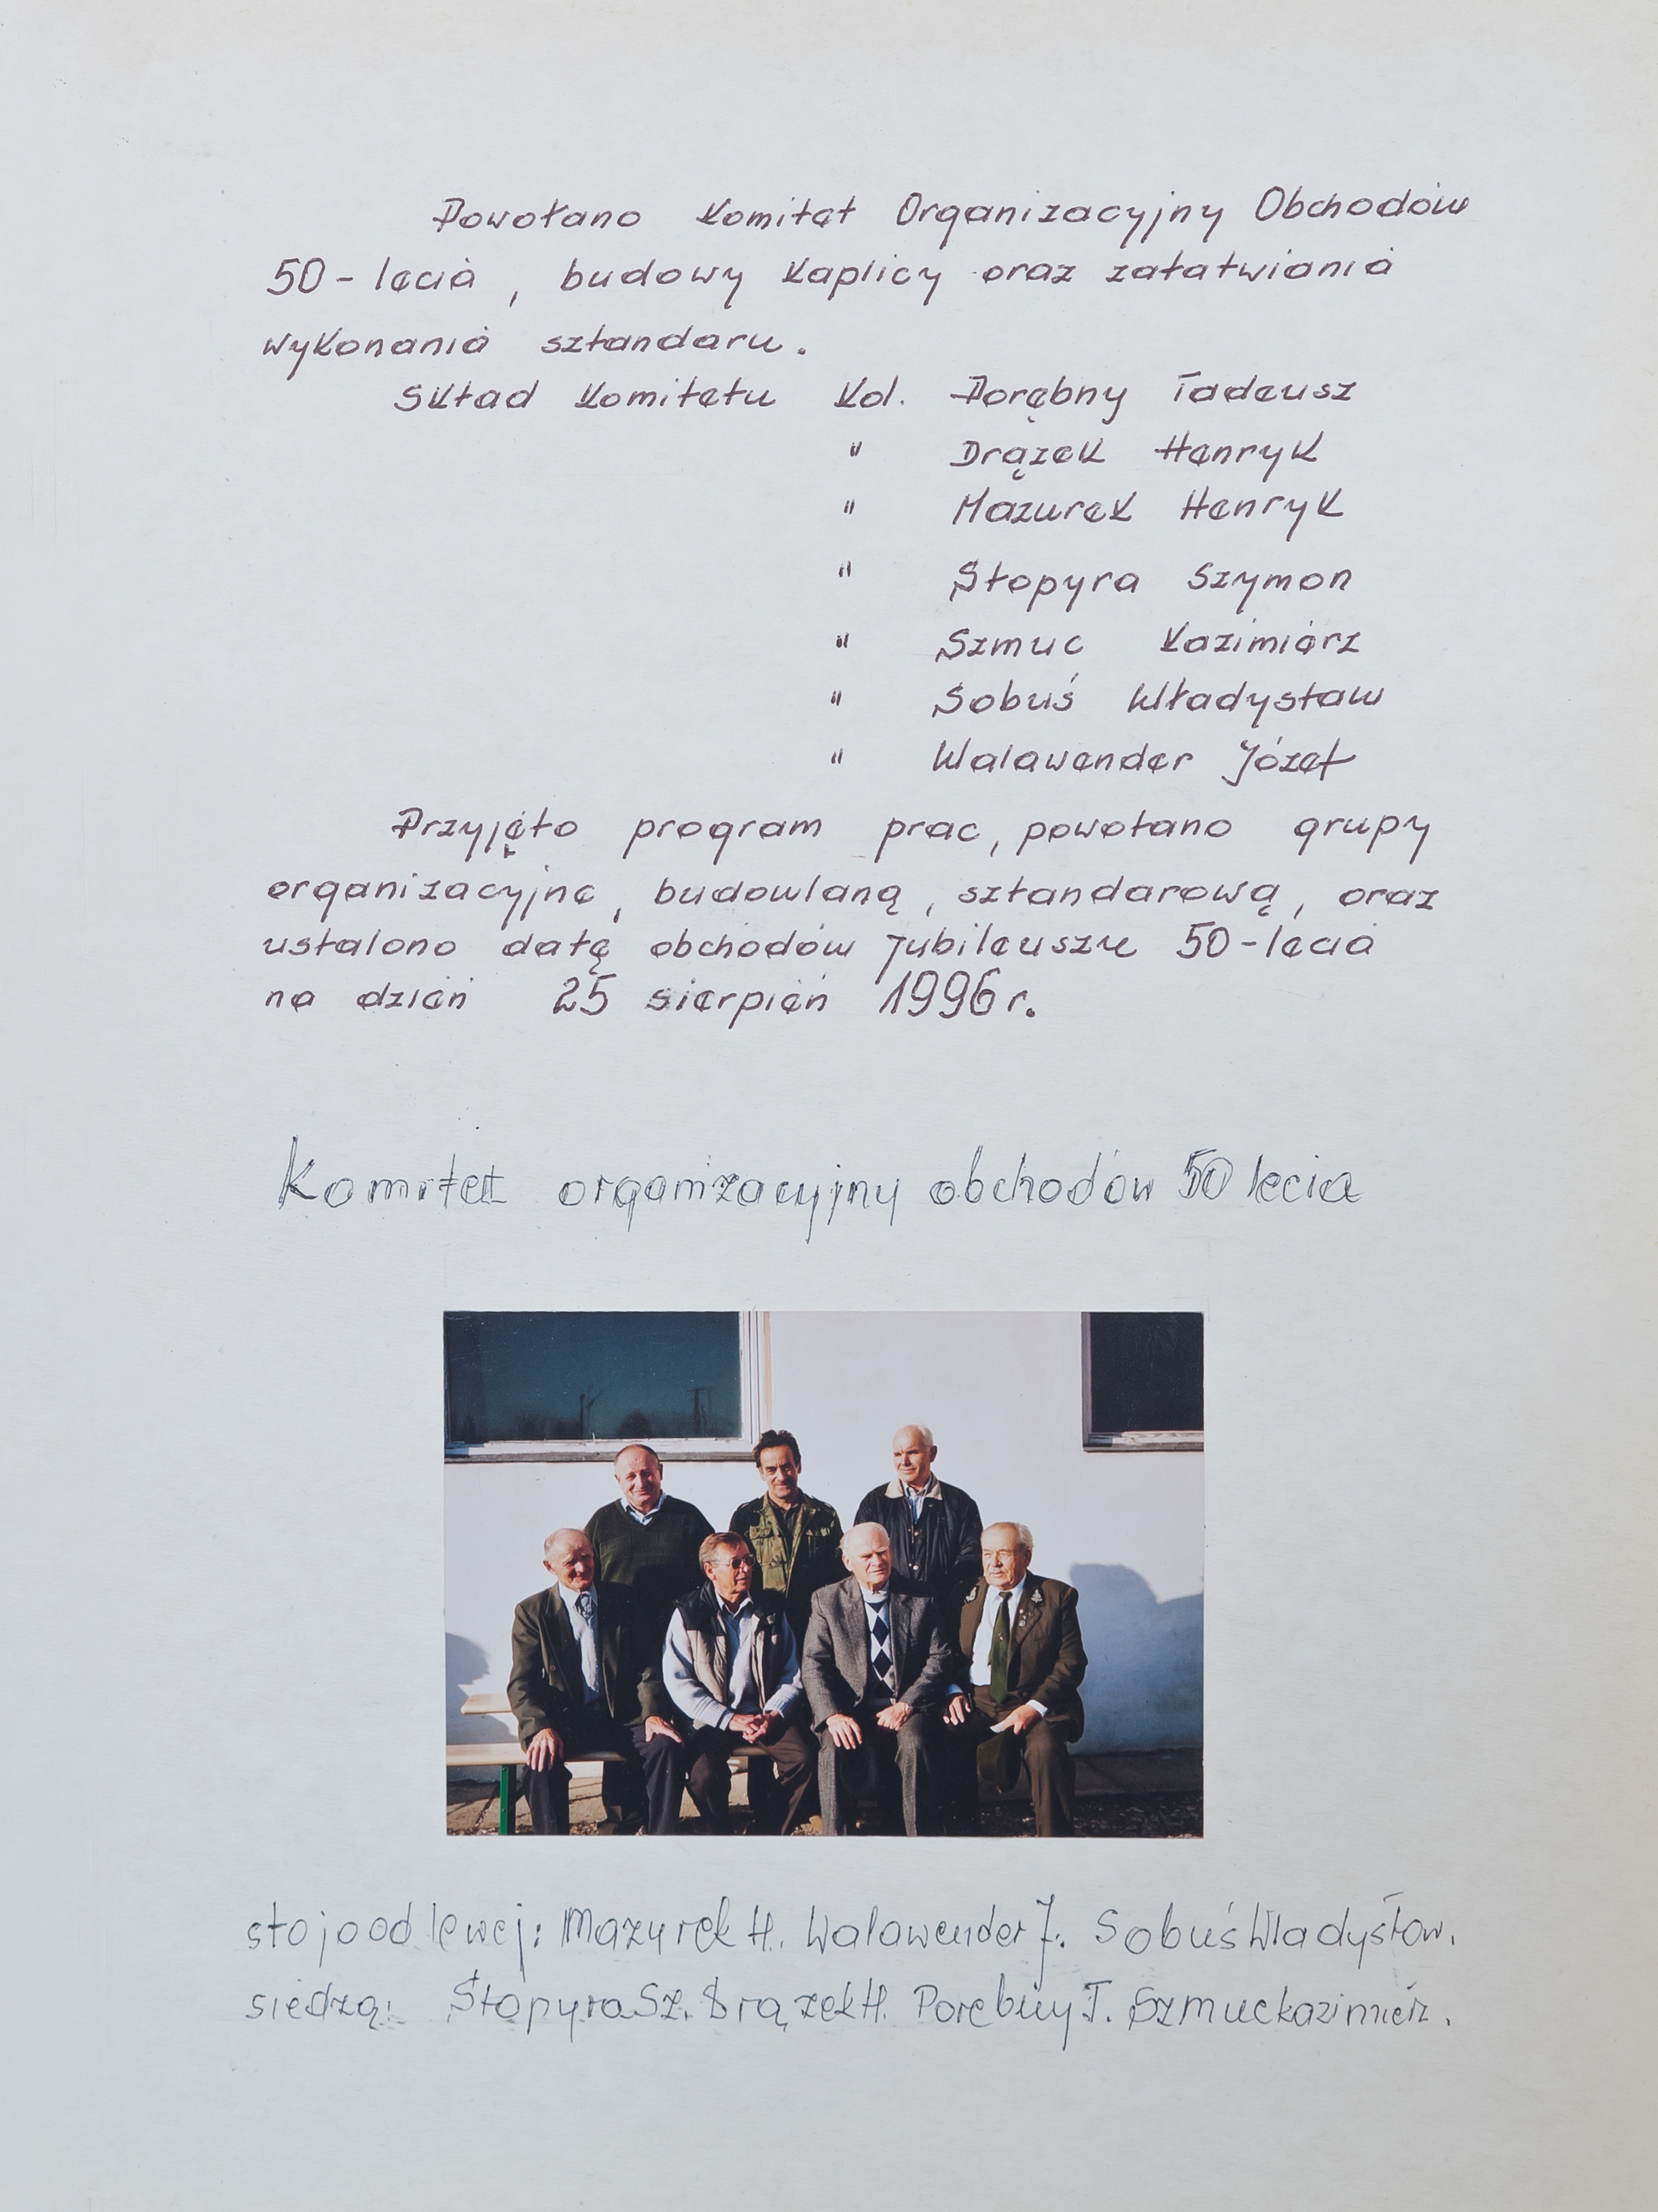 Powołano Komitet Organizacyjny Obchodów
50-lecia, budowy Kaplicy oraz załatwiania
wykonania sztandaru.
Skład Komitetu Kol. Porębny Tadeusz
" Drązek Henryk
" Mazurek Henryk
" Stopyra Szymon
" Szmuc Kazimierz
" Sobuś Władysław
" Walawender Józef
Przyjęto program prac, powołano grupy
organizacyjne, budowlaną, sztandarową, oraz
ustalono datę obchodów jubileuszu 50-lecia
na dzień 25 sierpień 1996 r.
Komitet organizacyjny obchodów 50 lecia
stoją od lewej: Mazurek H. Walawender J. Sobuś Władysław.
siedzą: Stopyra Sz. Drązek H. Porębny T. Szmuc kazimierz.